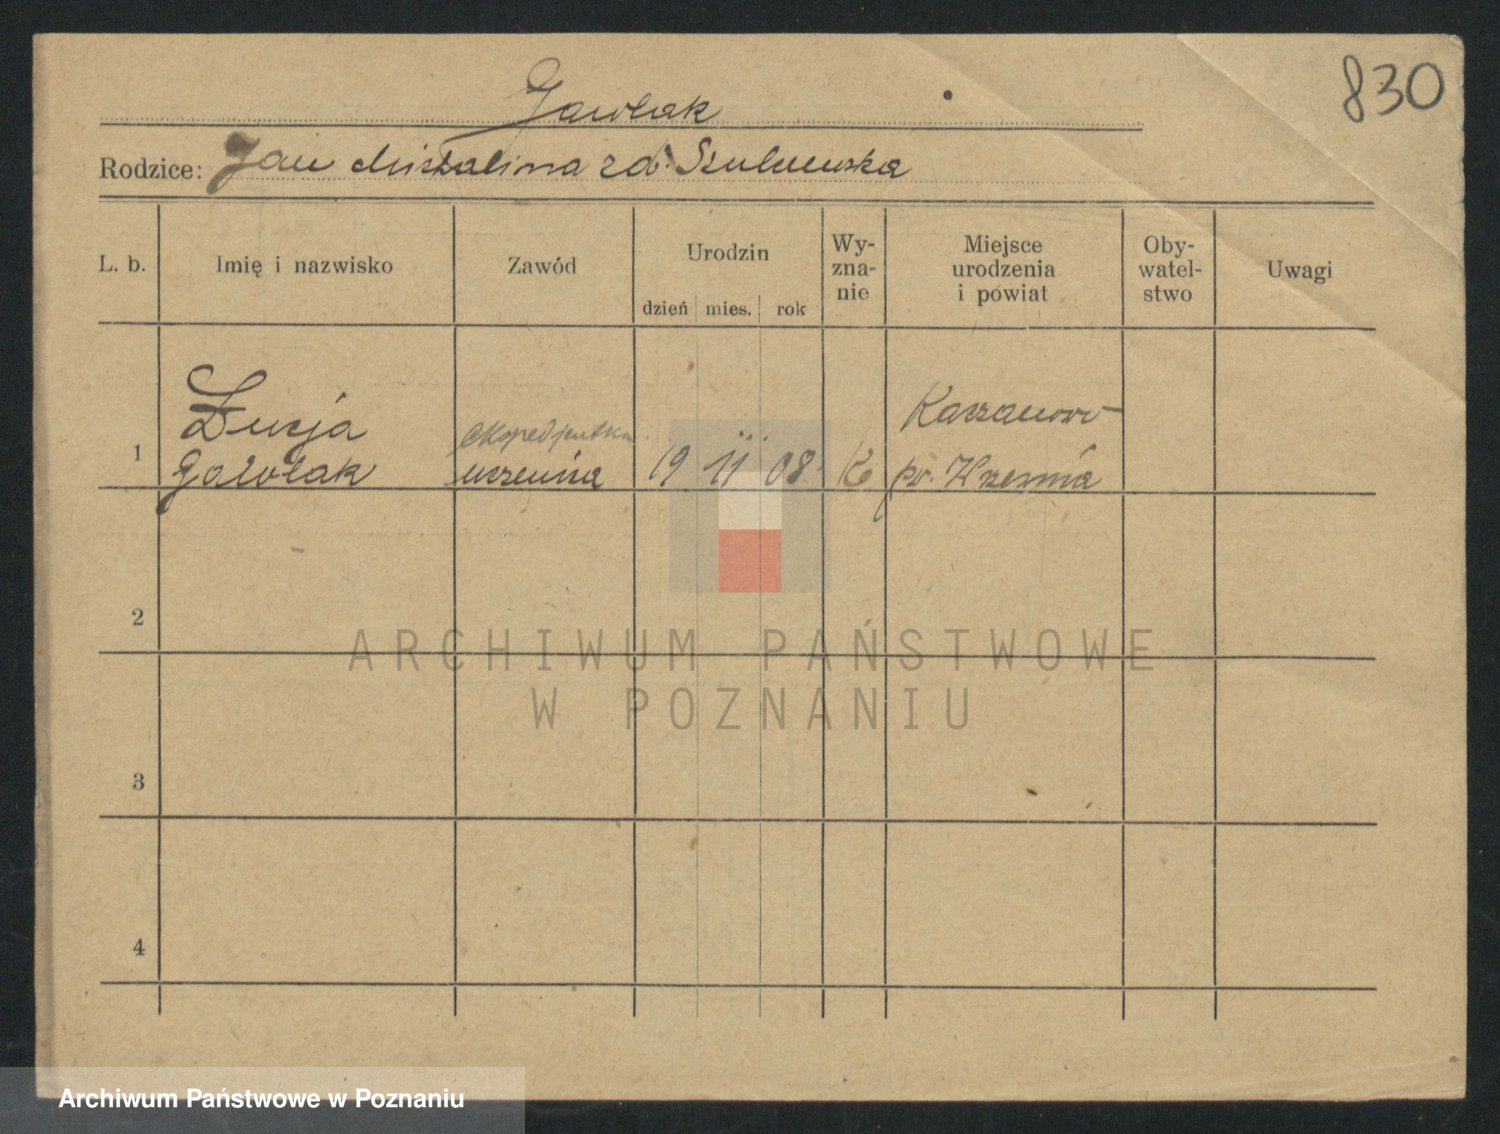 830
Gawlak
Rodzice: Jan Michalina zd.
L. b.
Imię i nazwisko
Zawód
Urodzin
dzień mies. rok
Wy-
zna-
nie
Miejsce
urodzenia
i powiat
Oby-
watel-
stwo
Uwagi
1
Łucja
Gawlak
ekspedjentka
uczenica
19 11 08
K
Kaczanowo
pw. Września
2
3
4
ARCHIWUM PAŃSTWOWE
W POZNANIU
Archiwum Państwowe w Poznaniu